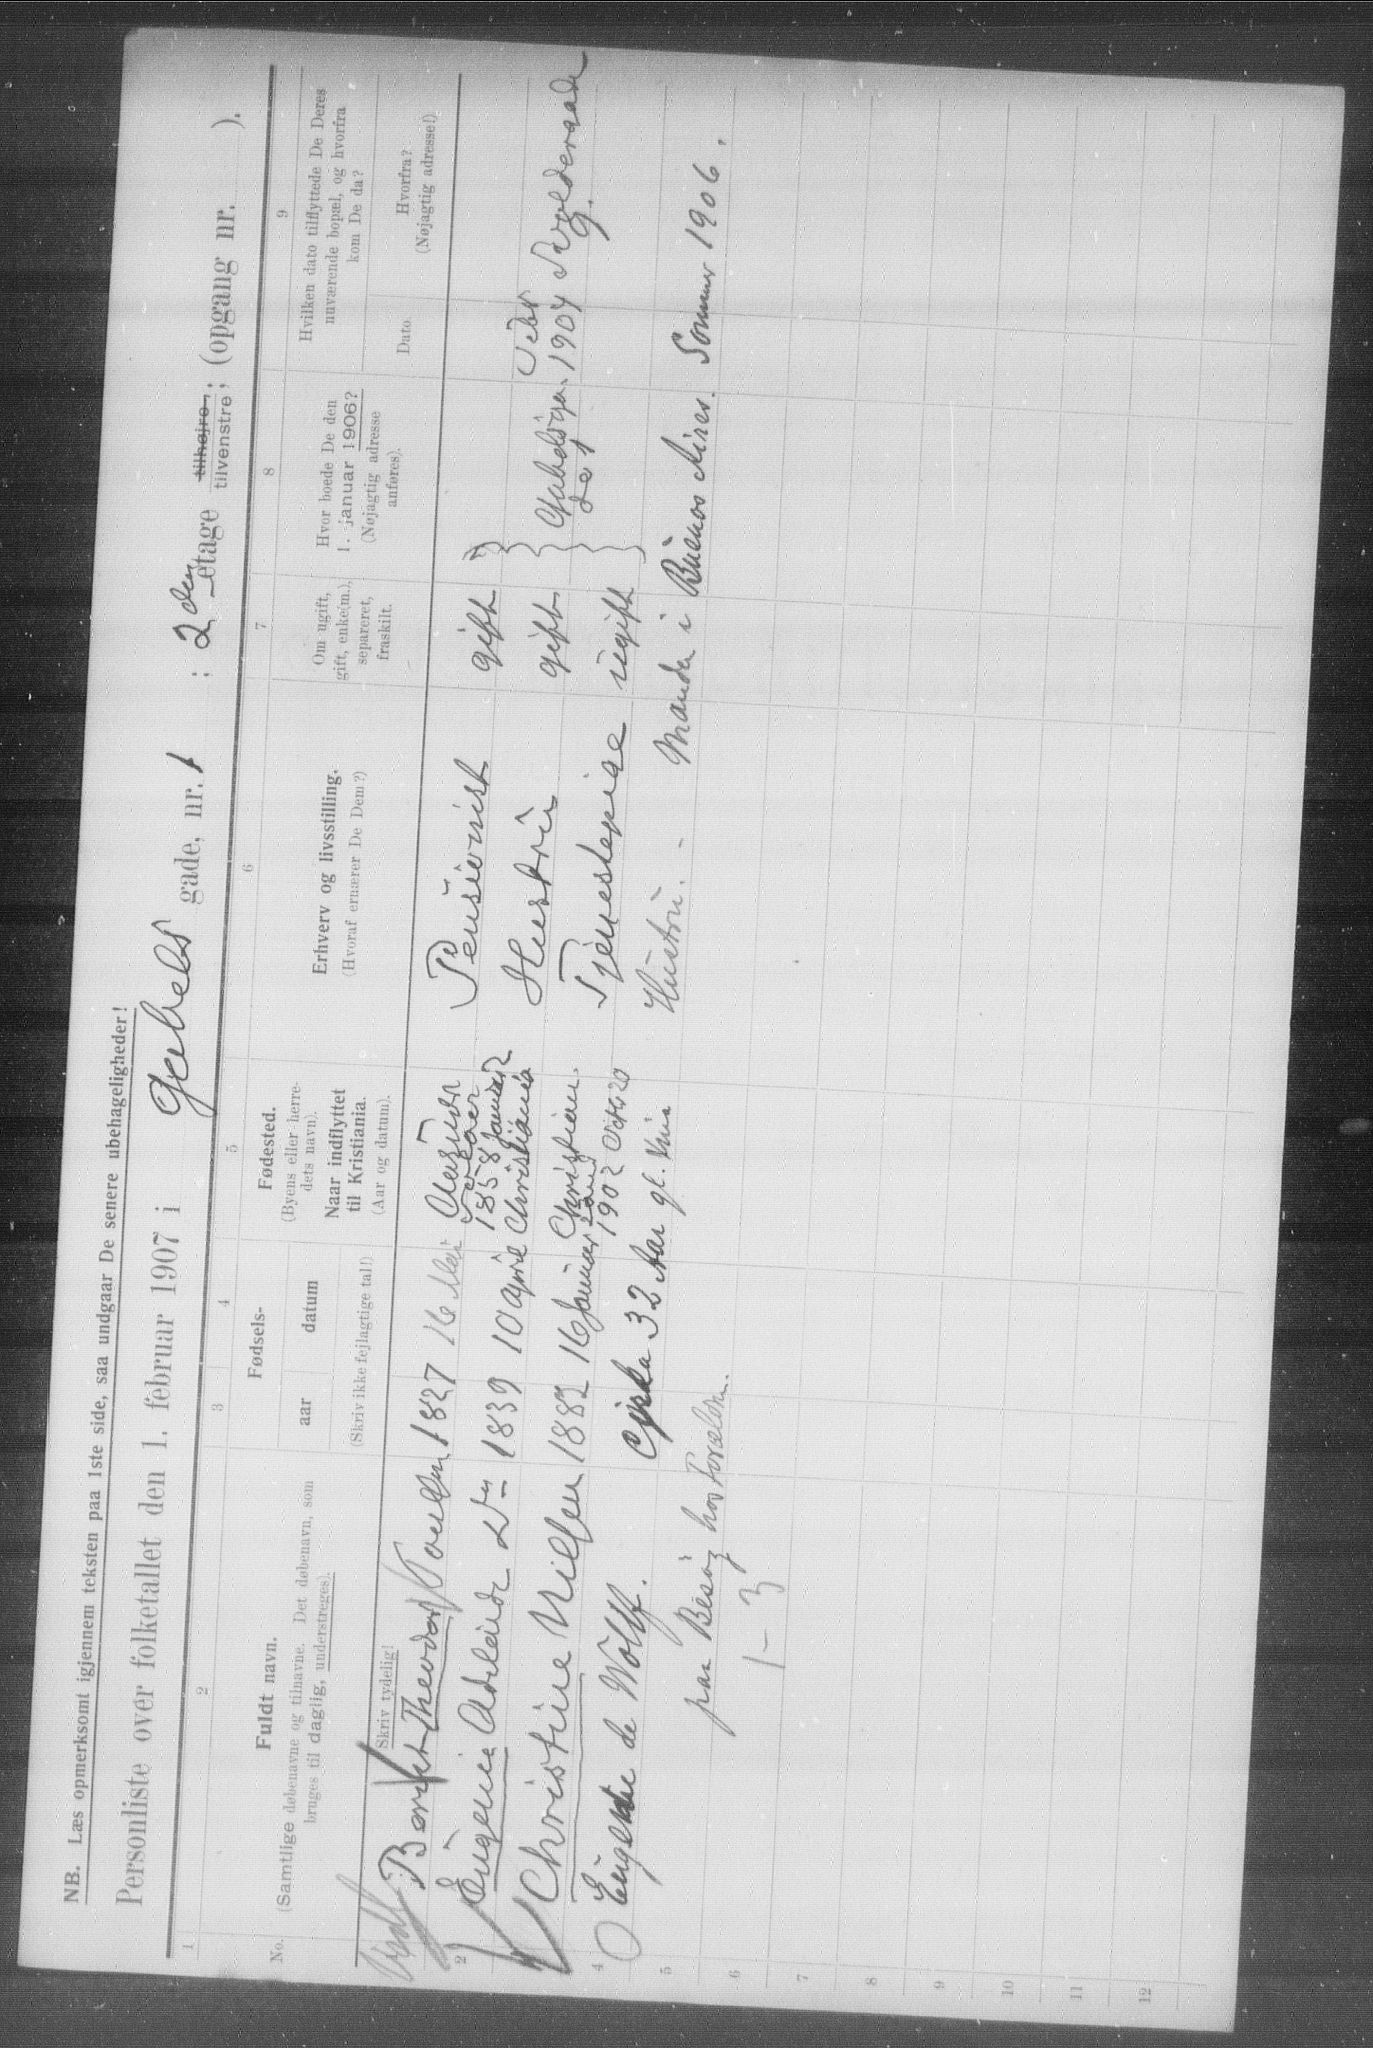 NB. Læs opmerksomt igjennem teksten paa 1ste side, saa undgaar De senere ubehageligheder!
Personliste over folketallet den 1. februar 1907 i Gabels gade, nr. 1 ; 2den etage tilhøjre, tilvenstre; (opgang nr. ).
1 2 3 4 5 6 7 8 9
No.
Fuldt navn.
(Samtlige døbenavne og tilnavne. Det døbenavn, som
bruges til daglig, understreges).
Skriv tydelig!
Fødsels-
aar datum
(Skriv ikke fejlagtige tal!)
Fødested.
(Byens eller herre-
dets navn).
Naar indflyttet
til Kristiania.
(Aar og datum).
Erhverv og livsstilling.
(Hvoraf ernærer De Dem?)
Om ugift,
gift, enke(m.),
separeret,
fraskilt.
Hvor boede De den
1. januar 1906?
(Nøjagtig adresse
anføres).
Hvilken dato tilflyttede De Deres
nuværende bopæl, og hvorfra
kom De da?
Dato.
Hvorfra?
(Nøjagtig adresse!)
Bernt Theodor 1827 16 Mai
1858 Januar
Pensionist gift
2 Eugenie Adelaide Do 1839 10 April Christiania Hustru gift
Christine Nilsen 1882 16 Januar Christian
sand
1902 Octbr 20
Tjenestepige ugift
Gabelsga.
do 1
Octbr
1904
4 Eugenie de Wolff. Cirka 32 Aar gl. Kvin Hustru. - Manden i Buenos Aires. Sommer 1906.
paa Besøg hos Forældrene.
1 - 3
5
6
7
8
9
10
11
12